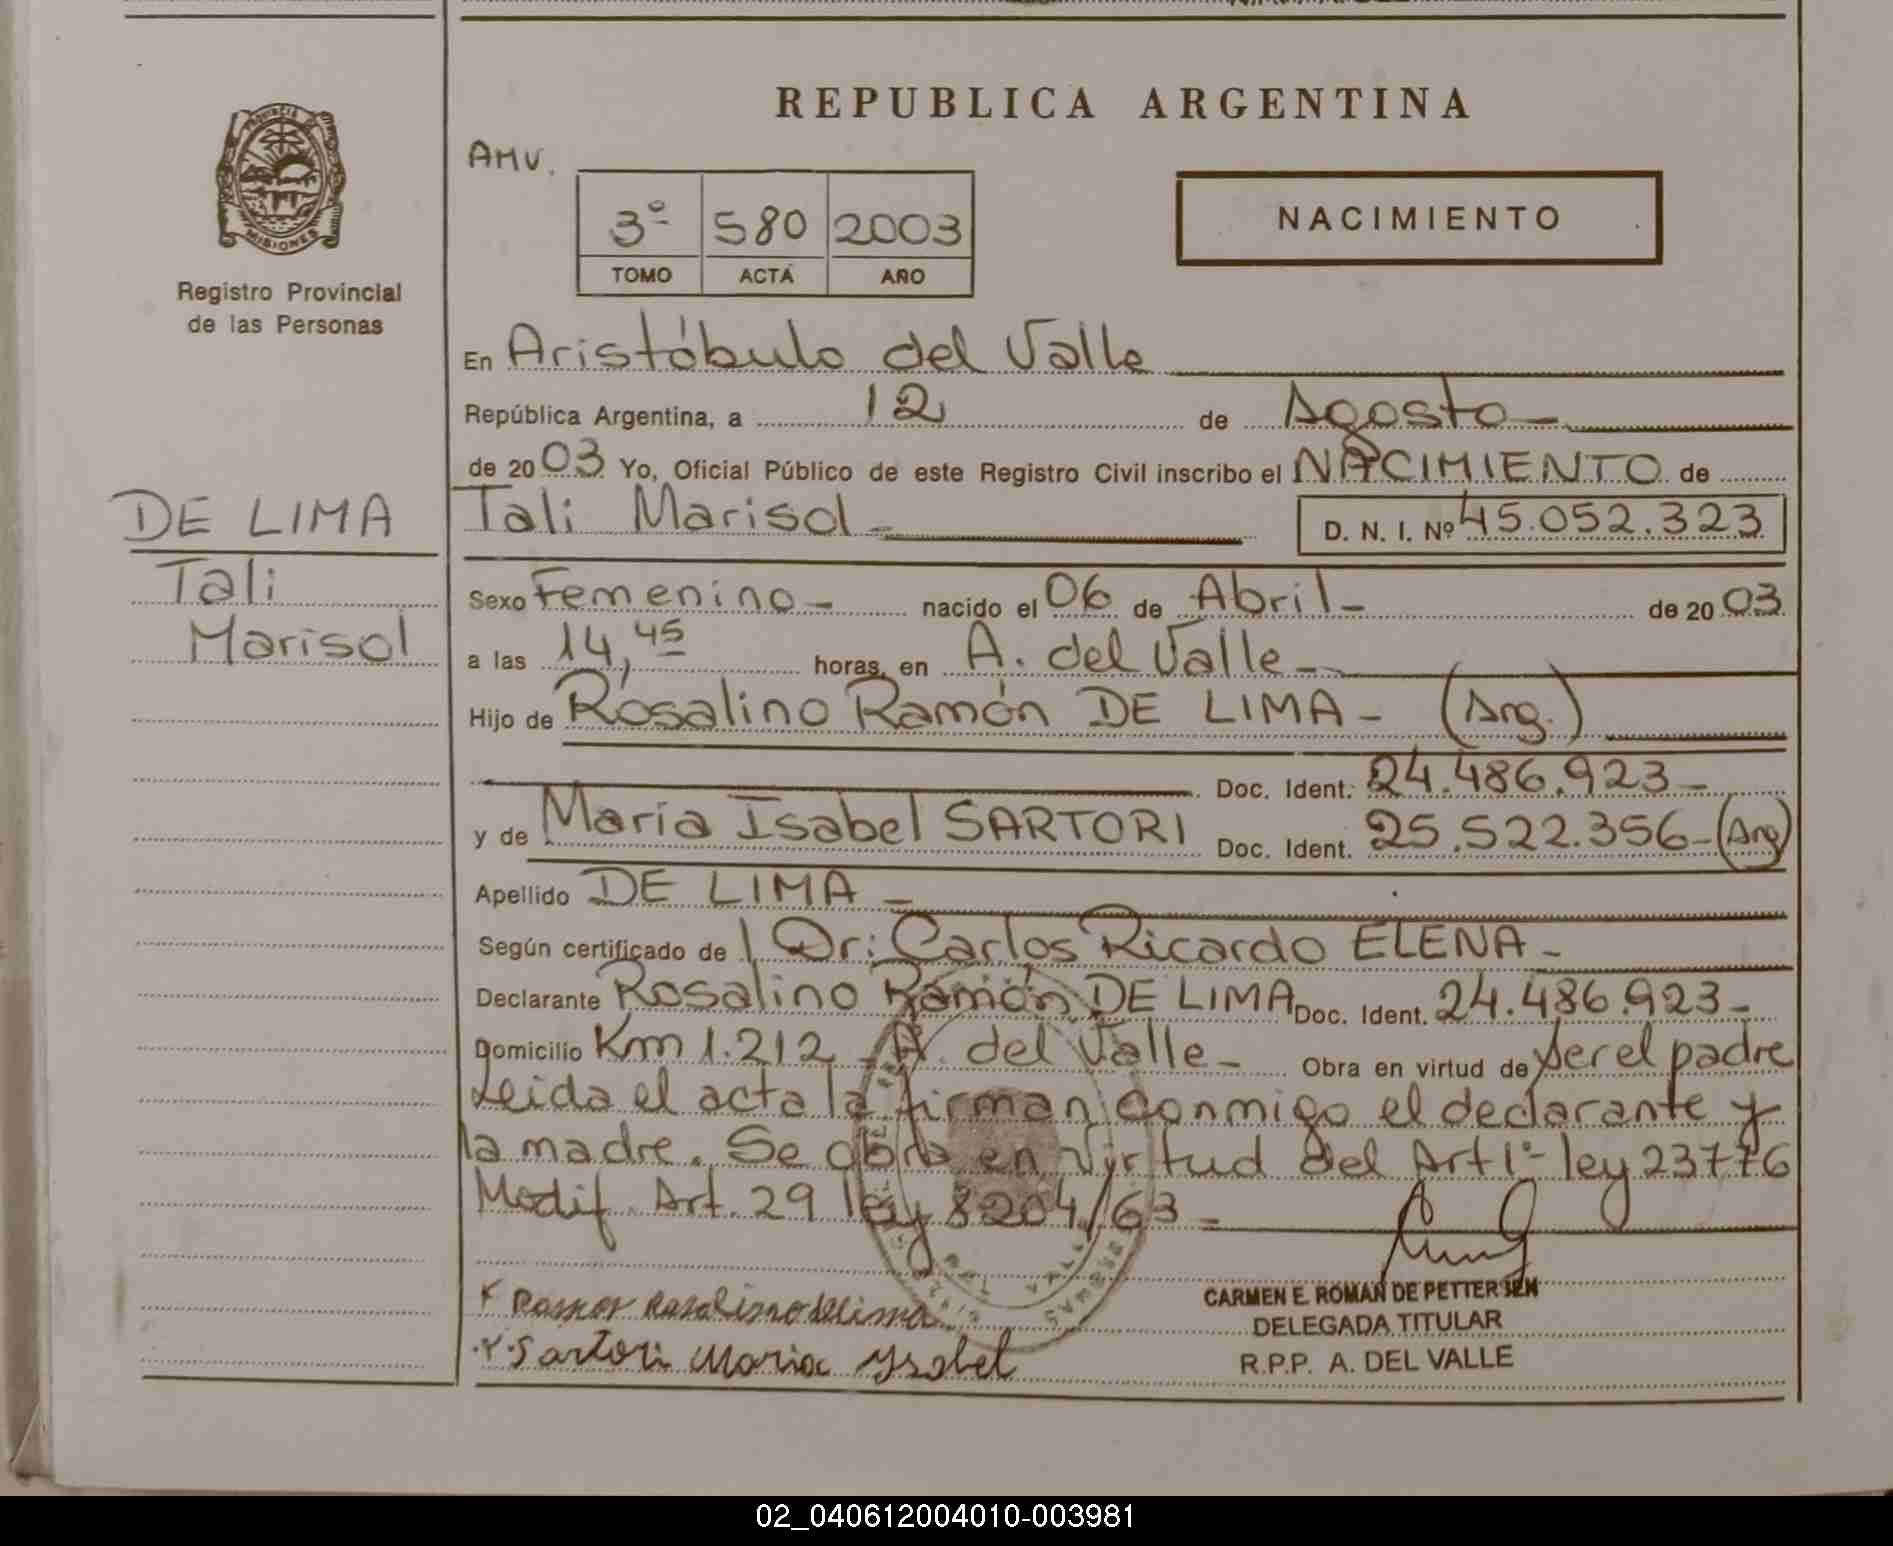 REPUBLICA ARGENTINA
PROVINCIA DE
MISIONES
Registro Provincial
de las Personas
AMV.
3º 580 2003
TOMO ACTA AÑO
NACIMIENTO
En Aristóbulo del Valle
República Argentina, a 12 de Agosto
de 2003 Yo, Oficial Público de este Registro Civil inscribo el NACIMIENTO de
DE LIMA
Tali
Marisol
Tali Marisol D. N. I. Nº 45.052.323
Sexo Femenino nacido el 06 de Abril de 2003
a las 14,45 horas, en A. del Valle
Hijo de Rosalino Ramón DE LIMA - (Arg.)
Doc. Ident. 24.486.923
y de María Isabel SARTORI Doc. Ident. 25.522.356 - (Arg)
Apellido DE LIMA
Según certificado de Dr: Carlos Ricardo ELENA
Declarante Rosalino Ramón DE LIMA Doc. Ident. 24.486.923
Domicilio Km 1.212 - A. del Valle Obra en virtud de ser el padre
Leida el acta la firman conmigo el declarante y
la madre. Se obra en virtud del Art 1º ley 23776
Modif. Art. 29 ley 8204/63
Sartori Maria Ysabel
CARMEN E. ROMAN DE PETTERSEN
DELEGADA TITULAR
R.P.P. A. DEL VALLE
02_040612004010-003981